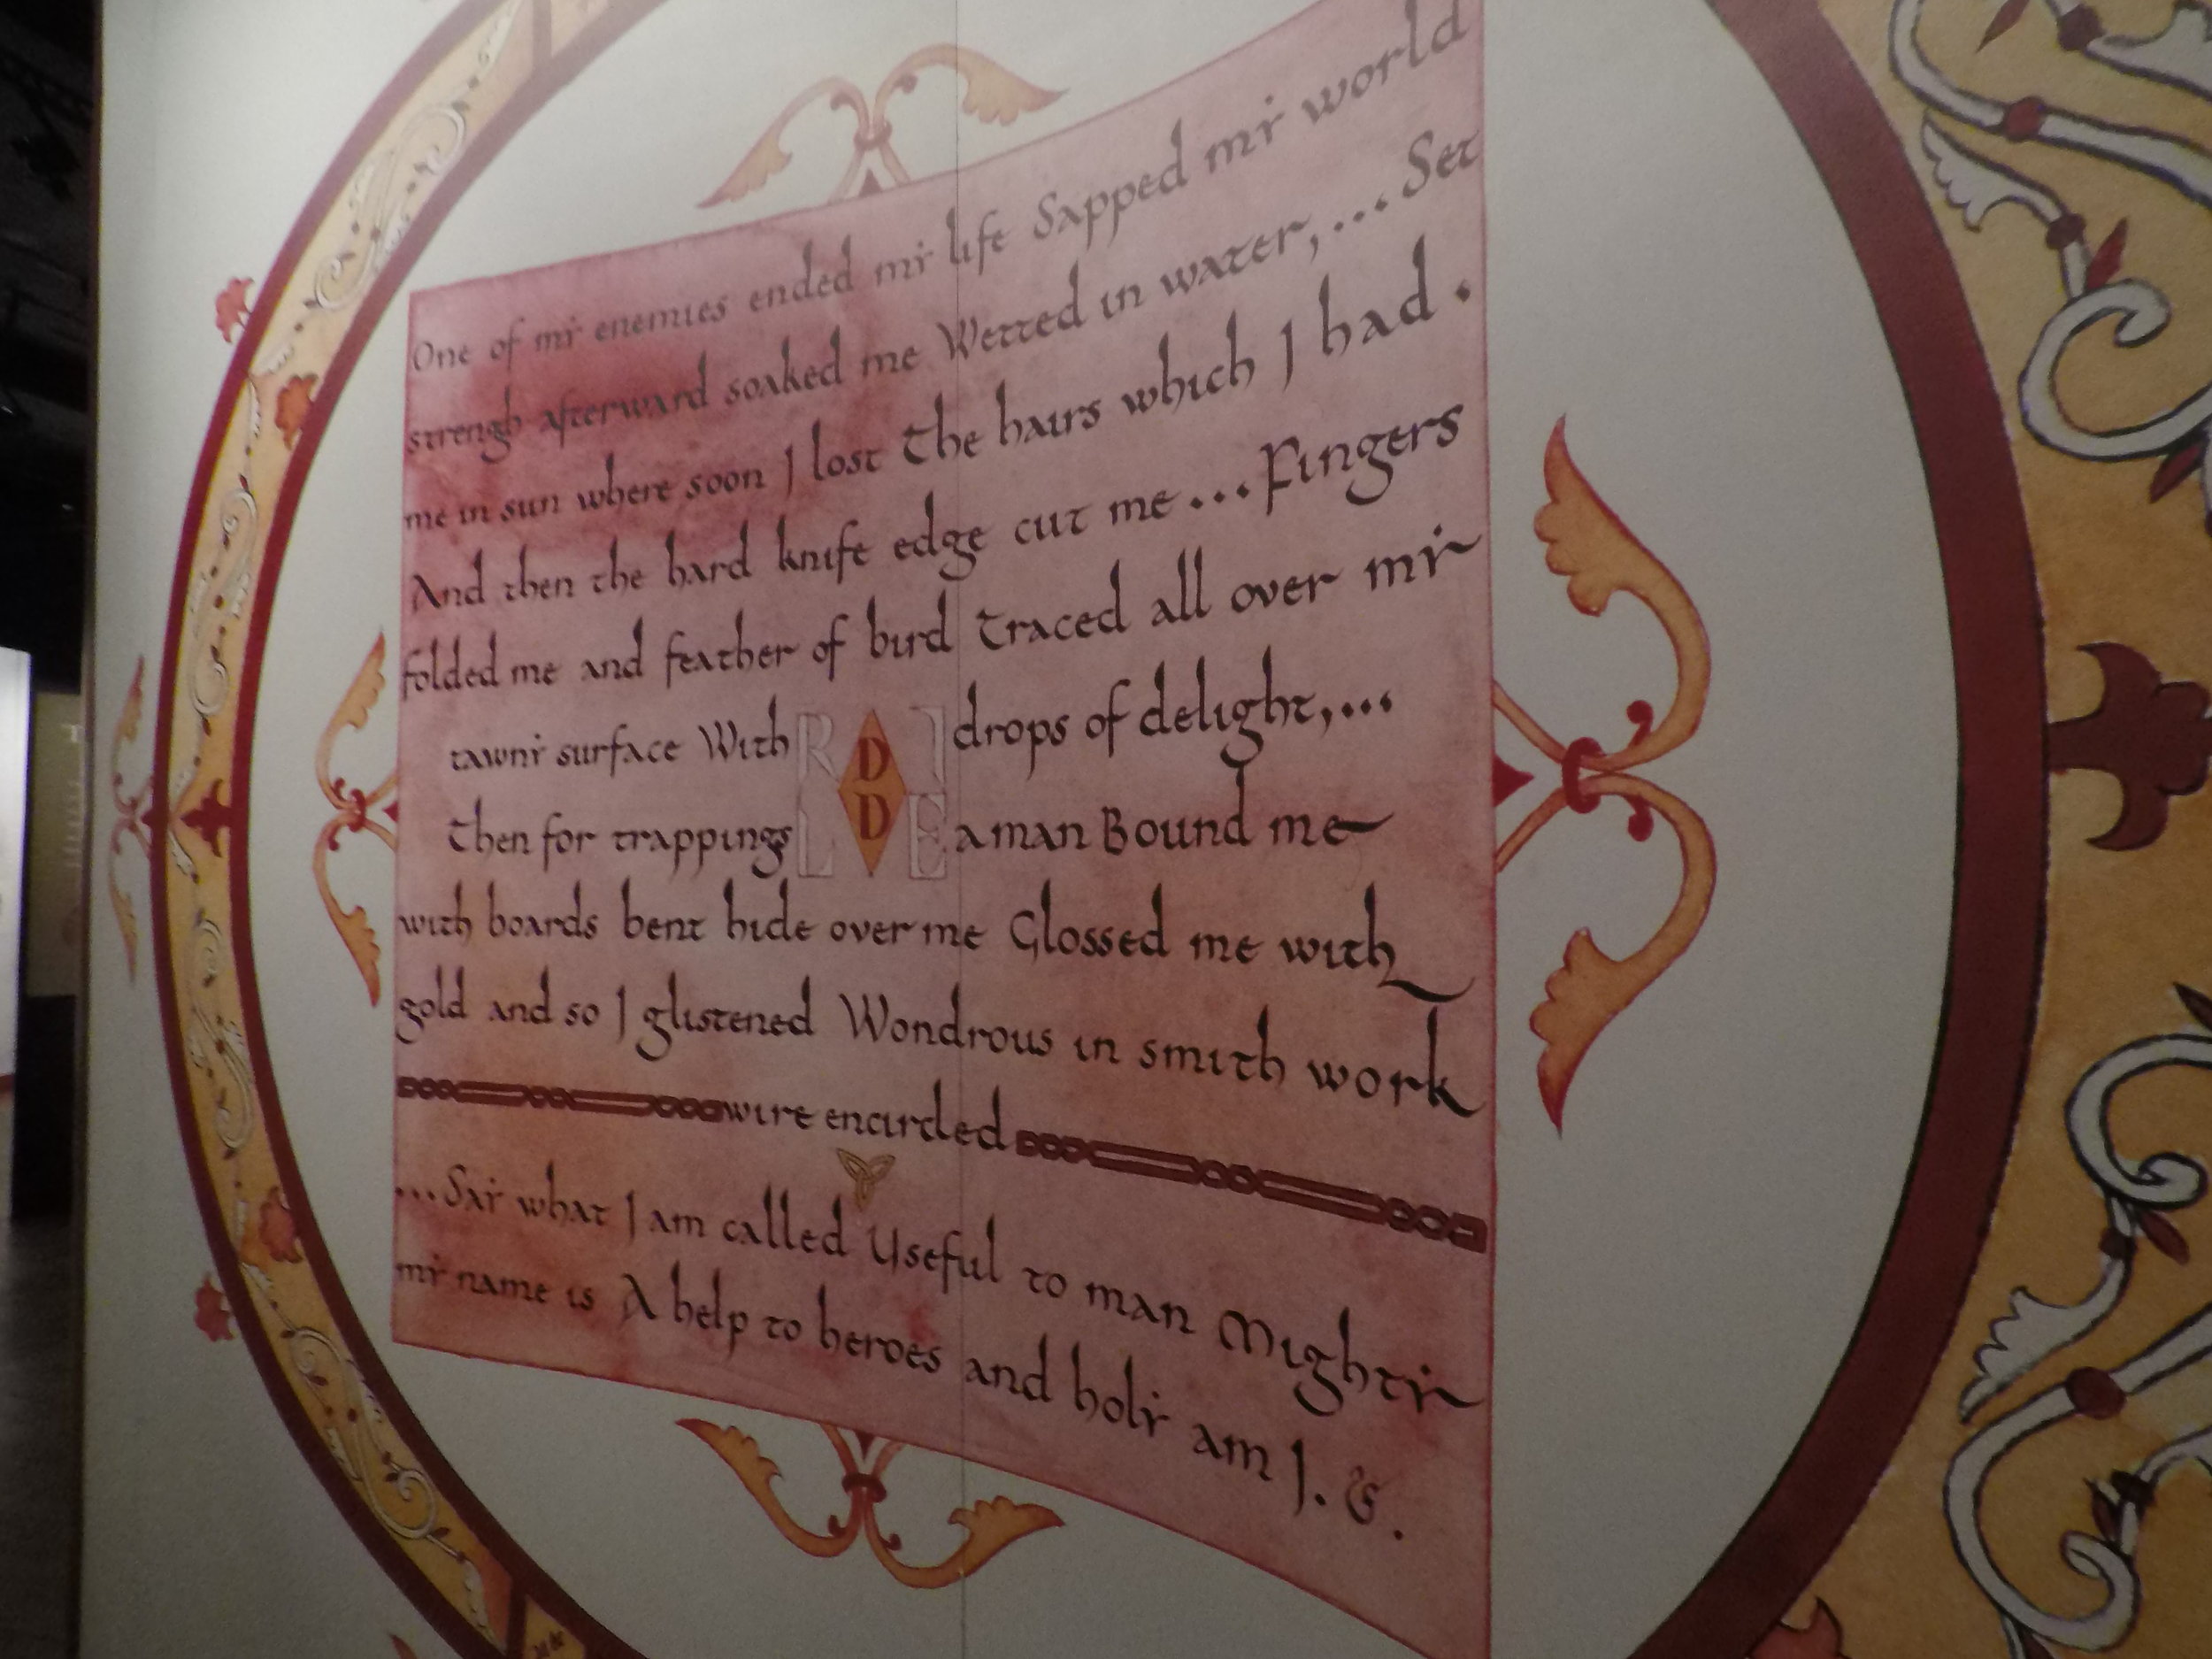 One of my enemies ended my life Sapped my world
strengh afterward soaked me Wetted in water,... Set
me in sun where soon I lost The hairs which I had.
And then the hard knife edge cut me... Fingers
folded me and feather of bird Traced all over my
tawny surface With drops of delight,...
RIDDLE
Then for trappings a man Bound me
with boards bent hide over me Glossed me with
gold and so I glistened Wondrous in smith work
wire encircled
...Say what I am called Useful to man Mighty
my name is A help to heroes and holy am I. &.